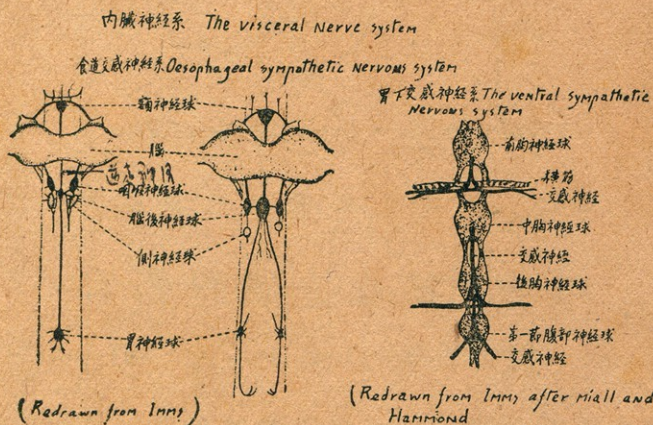 内臓神経系 The visceral nerve system
食道交感神経系 Oesophageal sympathetic nervous system
額神経球
脳
咽喉神経球
脳後神経球
側神経球
胃神経球
(Redrawn from Imms)
胃下交感神経系 The ventral sympathetic
nervous system
前胸神経球
横筋
交感神経
中胸神経球
交感神経
後胸神経球
第一節腹部神経球
交感神経
(Redrawn from Imms after Miall and
Hammond